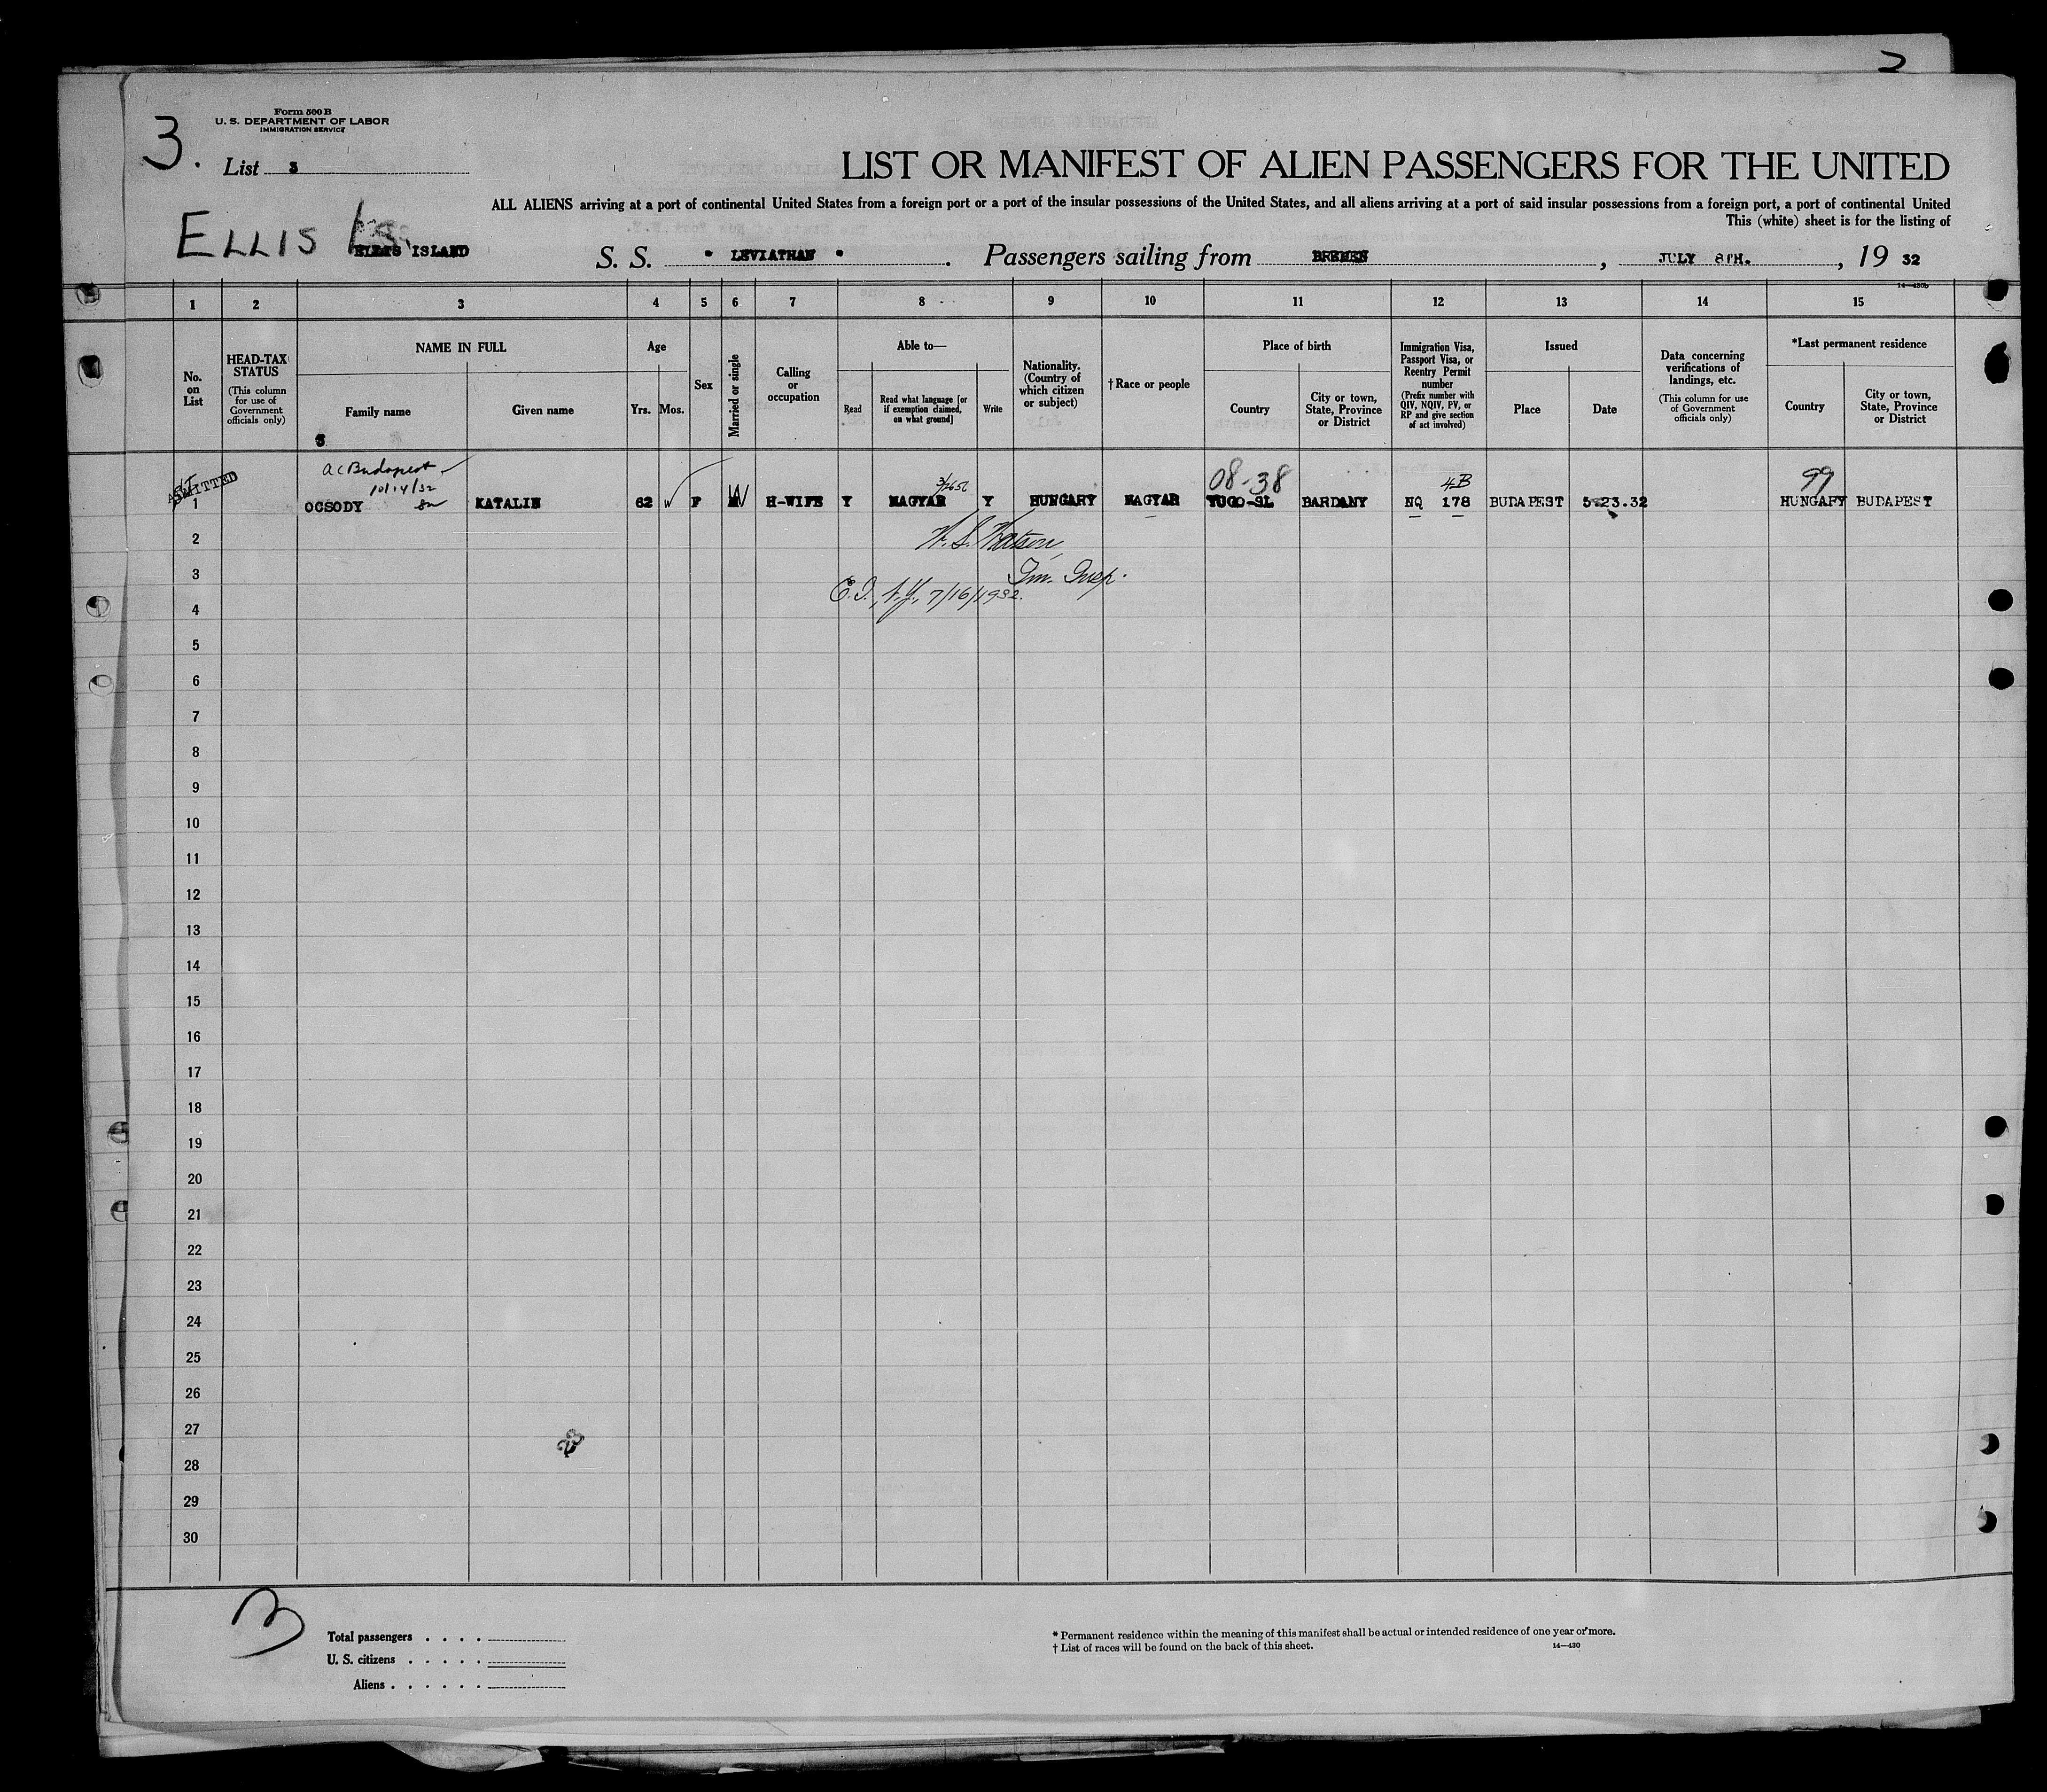 Form 500 B
U. S. DEPARTMENT OF LABOR
IMMIGRATION SERVICE
3.
List 3
LIST OR MANIFEST OF ALIEN PASSENGERS FOR THE UNITED
ALL ALIENS arriving at a port of continental United States from a foreign port or a port of the insular possessions of the United States, and all aliens arriving at a port of said insular possessions from a foreign port, a port of continental United
This (white) sheet is for the listing of
ELLIS Is.
ELLIS ISLAND
S. S. " LEVIATHAN " . Passengers sailing from BREMEN , JULY 8TH. , 19 32
14—430b
1 2 3 4 5 6 7 8 9 10 11 12 13 14 15
No. on List
HEAD-TAX STATUS (This column for use of Government officials only)
NAME IN FULL
Family name
Given name
Age
Yrs. Mos.
Sex
Married or single
Calling or occupation
Able to—
Read
Read what language [or if exemption claimed, on what ground]
Write
Nationality. (Country of which citizen or subject)
† Race or people
Place of birth
Country
City or town, State, Province or District
Immigration Visa, Passport Visa, or Reentry Permit number (Prefix number with QIV, NQIV, PV, or RP and give section of act involved)
Issued
Place
Date
Data concerning verifications of landings, etc. (This column for use of Government officials only)
*Last permanent residence
Country
City or town, State, Province or District
ac Budapest
10/14/32
08-38
4B
99
ADMITTED
1 OCSODY KATALIN 62 W F W H-WIFE Y MAGYAR Y HUNGARY MAGYAR YUGO-SL BARDANY NQ 178 BUDAPEST 5-23.32 HUNGARY BUDAPEST
2
W. S. Watson
3
Im. Insp.
E.I., N.Y., 7/16/1932.
4
5
6
7
8
9
10
11
12
13
14
15
16
17
18
19
20
21
22
23
24
25
26
27
28
29
30
3
Total passengers . . . .
U. S. citizens . . . . .
Aliens . . . . . .
* Permanent residence within the meaning of this manifest shall be actual or intended residence of one year or more.
† List of races will be found on the back of this sheet.
14—430